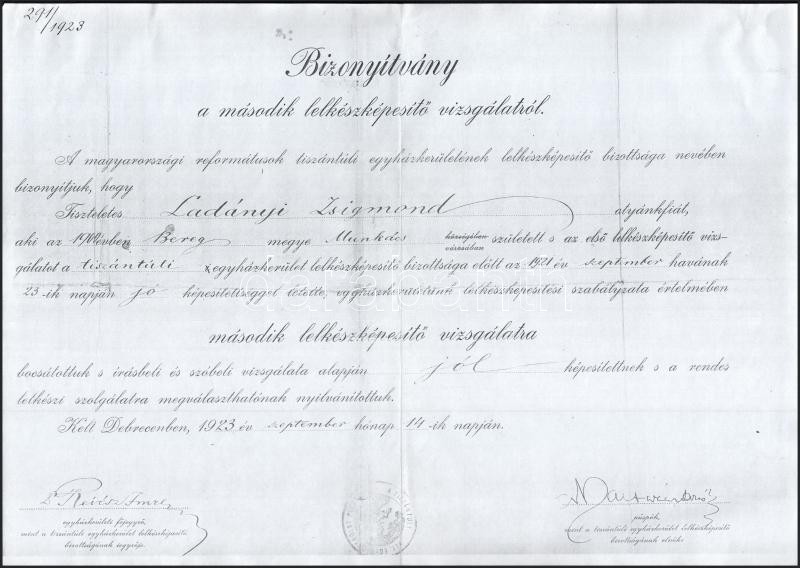 291/1923
Bizonyítvány
a második lelkészképesítő vizsgálatról.
A magyarországi reformátusok tiszántúli egyházkerületének lelkészképesítő bizottsága nevében
bizonyítjuk, hogy
Tiszteletes Ladányi Zsigmond atyánkfiát,
aki az évben Bereg megye Munkács községében városában született s az első lelkészképesítő vizs-
gálatot a tiszántúli egyházkerület lelkészképesítő bizottsága előtt az 1921 év szeptember havának
23-ik napján jó képesítettséggel letette, egyházkerületünk lelkészképesítési szabályzata értelmében
második lelkészképesítő vizsgálatra
bocsátottuk s írásbeli és szóbeli vizsgálata alapján jól képesítettnek s a rendes
lelkészi szolgálatra megválaszthatónak nyilvánítottuk.
Kelt Debrecenben, 1923 év szeptember hónap 14-ik napján.
Dr Reiész Imre
egyházkerületi főjegyző,
mint a tiszántúli egyházkerület lelkészképesítő
bizottságának jegyzője.
püspök,
mint a tiszántúli egyházkerület lelkészképesítő
bizottságának elnöke